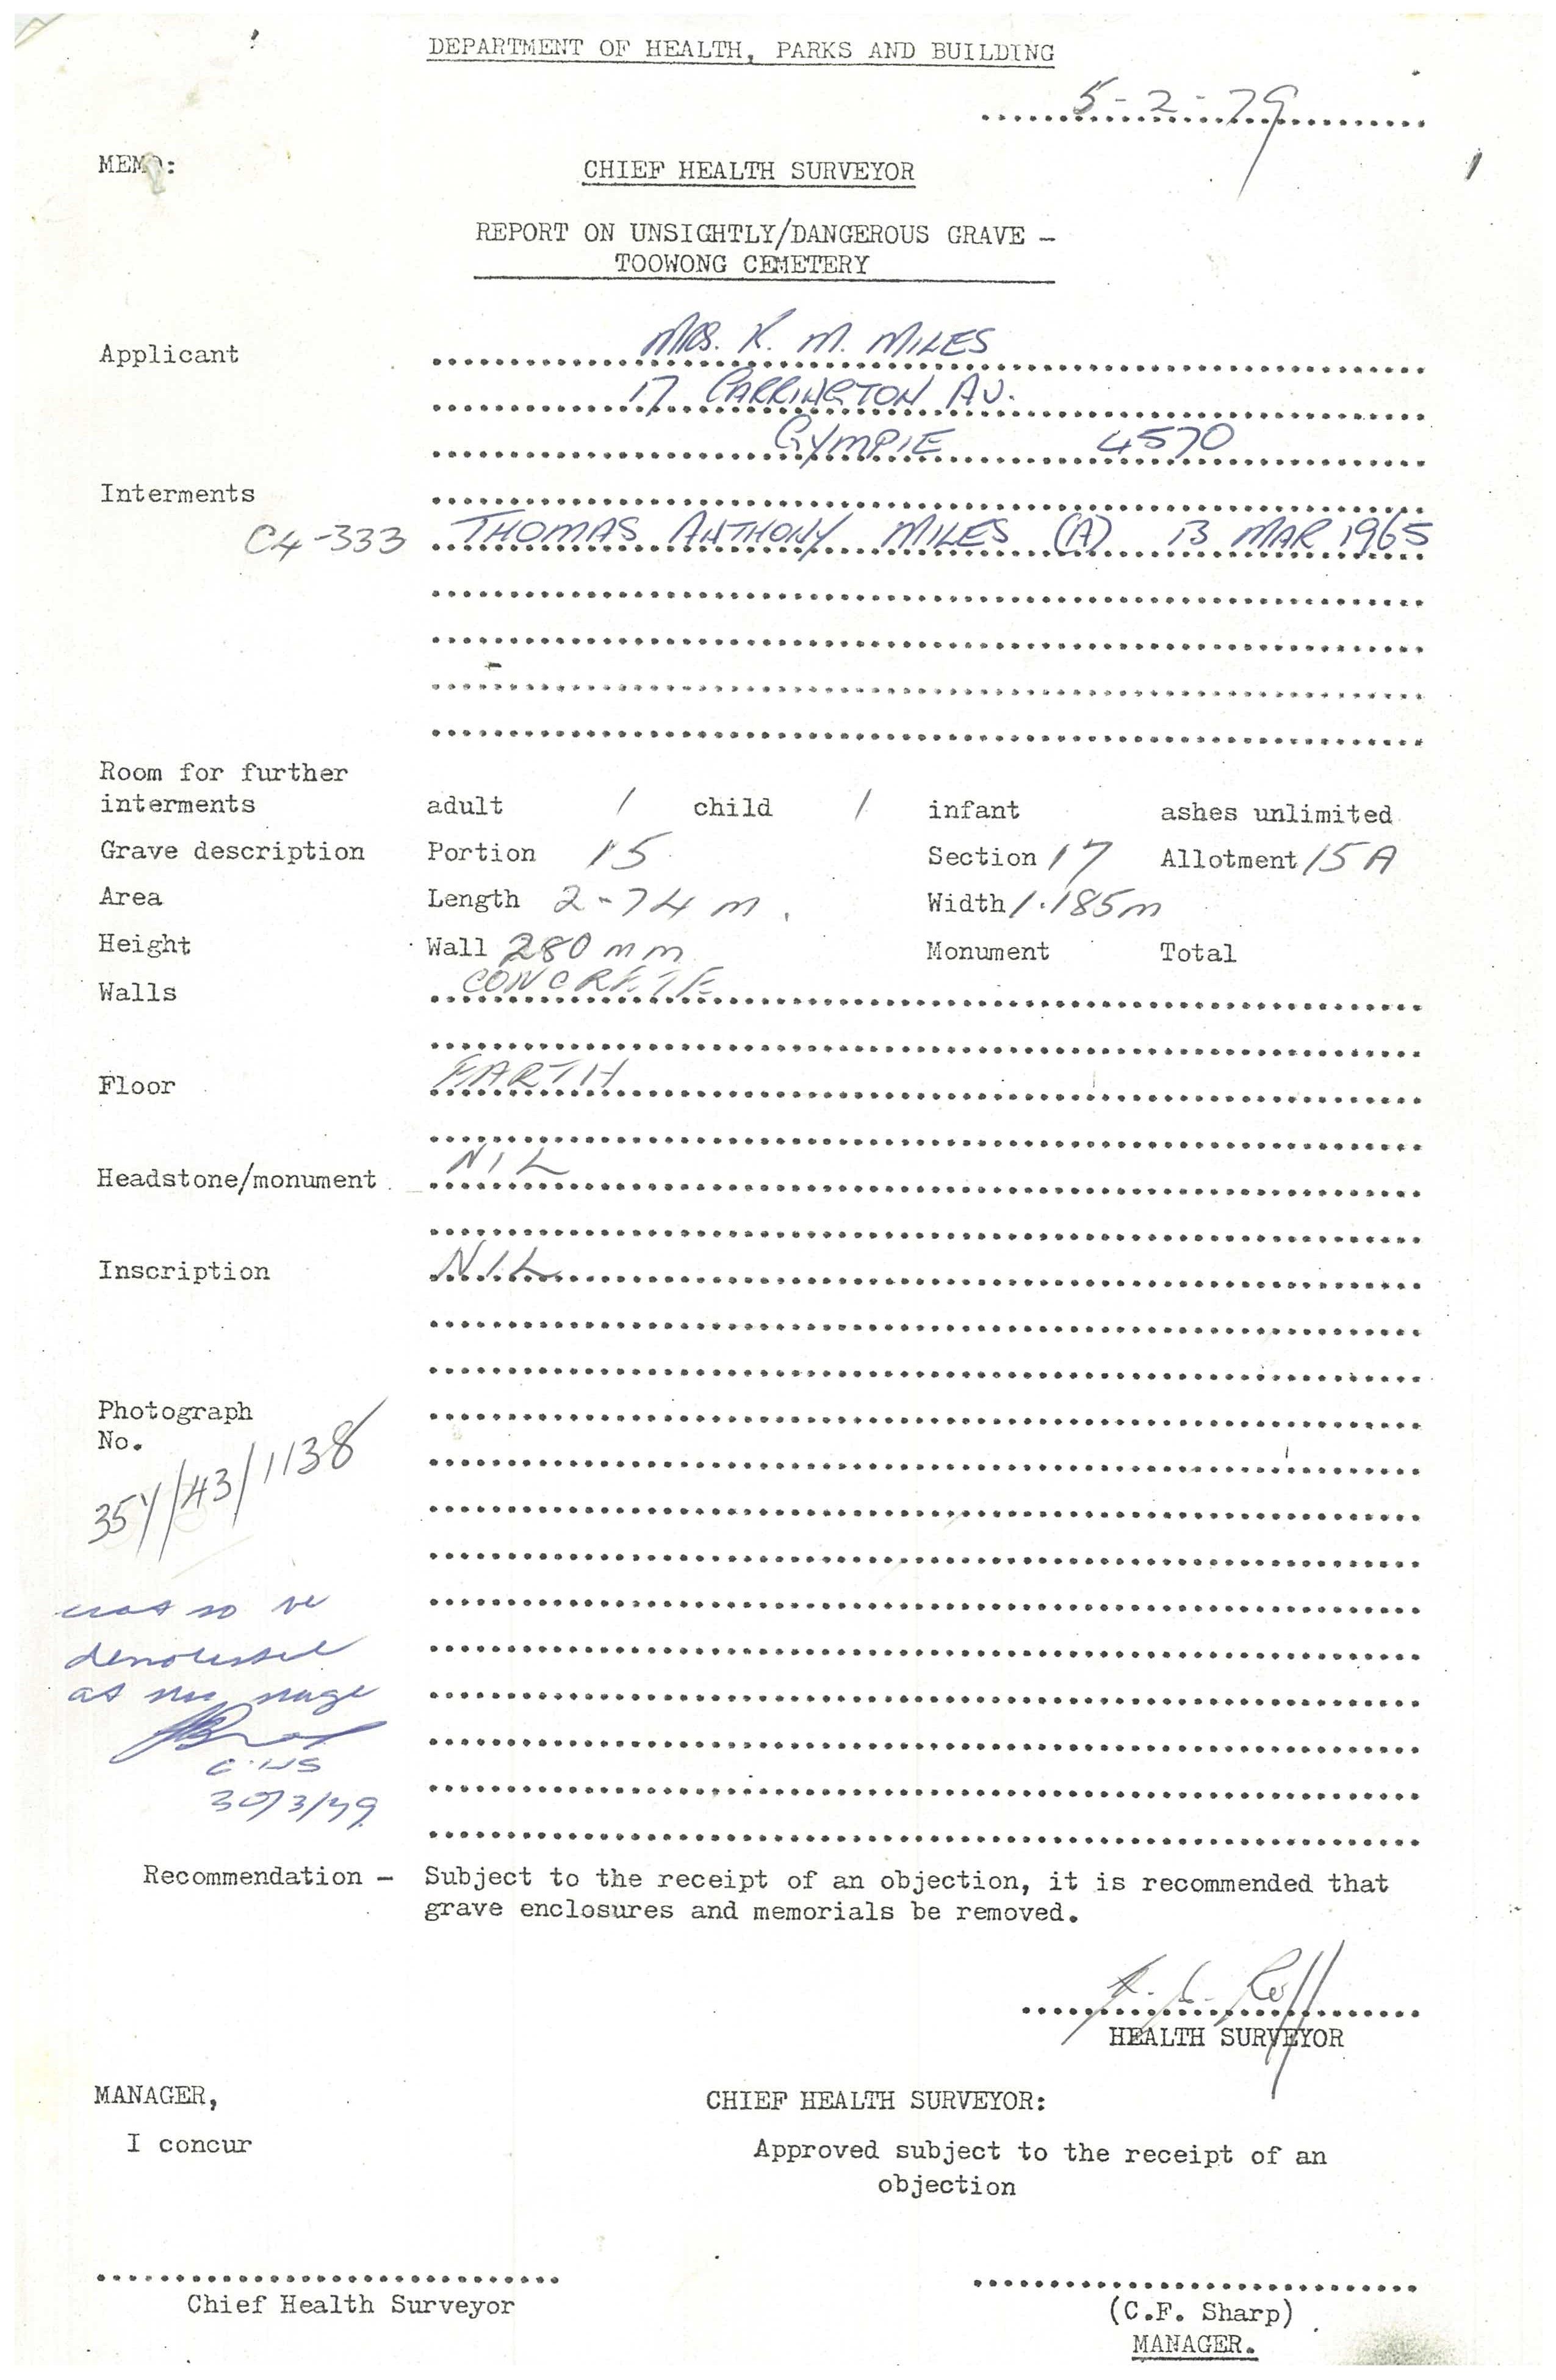 DEPARTMENT OF HEALTH, PARKS AND BUILDING
5-2-79
MEMO:
CHIEF HEALTH SURVEYOR
REPORT ON UNSIGHTLY/DANGEROUS GRAVE -
TOOWONG CEMETERY
Applicant MRS. K. M. MILES
17 CARRINGTON AV.
GYMPIE 4570
Interments
C4-333 THOMAS ANTHONY MILES (A) 13 MAR 1965
Room for further
interments adult 1 child 1 infant ashes unlimited
Grave description Portion 15 Section 17 Allotment 15A
Area Length 2-74 m. Width 1.185m
Height Wall 280 mm Monument Total
Walls CONCRETE
Floor EARTH
Headstone/monument NIL
Inscription NIL
Photograph
No.
354/43/1138
not to be
demolished
at this stage
CHS
30/3/79
Recommendation - Subject to the receipt of an objection, it is recommended that
grave enclosures and memorials be removed.
HEALTH SURVEYOR
MANAGER, CHIEF HEALTH SURVEYOR:
I concur Approved subject to the receipt of an
objection
Chief Health Surveyor
(C.F. Sharp)
MANAGER.